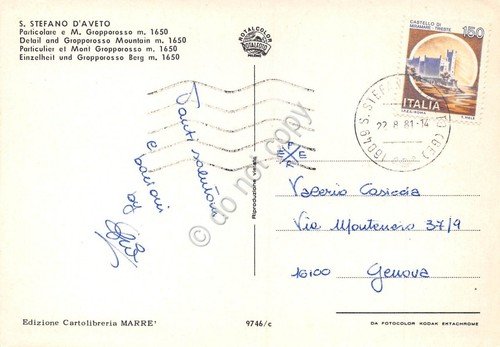 S. STEFANO D'AVETO
Particolare e M. Gropporosso m. 1650
Detail and Gropporosso Mountain m. 1650
Particulier et Mont Gropporosso m. 1650
Einzelheit und Gropporosso Berg m. 1650
ITALCOLOR
MILANO
CASTELLO DI
MIRAMARE - TRIESTE
150
ITALIA
I.P.Z.S. ROMA
22.8.81-14
16049 S. STEF
(GE)
Tanti saluti
e bacioni
by
Riproduzione vietata
do not copy
Valerio
Via Montenero 37/9
16100 Genova
Edizione Cartolibreria MARRE'
9746/c
DA FOTOCOLOR KODAK EKTACHROME